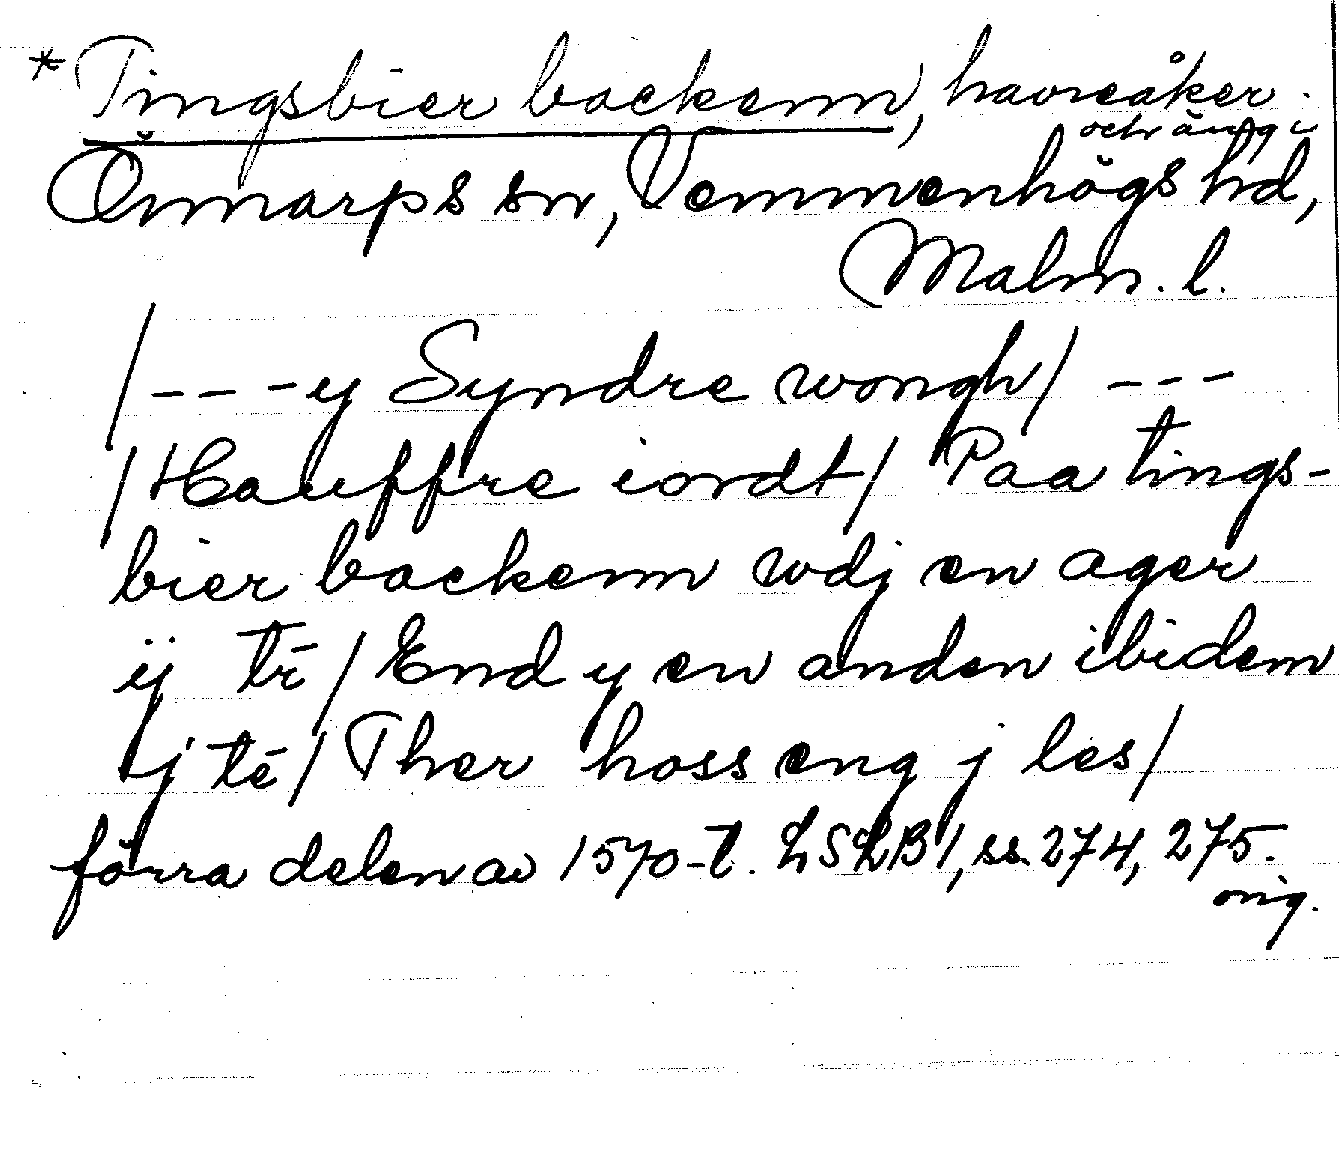 *Tingsbier backenn, havreåker
och äng i
Önnarps sn, Vemmenhögs hd,
Malm. l.
/---y Syndre wongh/ ---
/Hauffre iordt/ Paa tings-
bier backenn wdj en ager
ij tr̄ / End y en anden ibidem
j tē / Ther hoss eng j les/
förra delen av 1570-t. LSLB 1, ss. 274, 275.
orig.